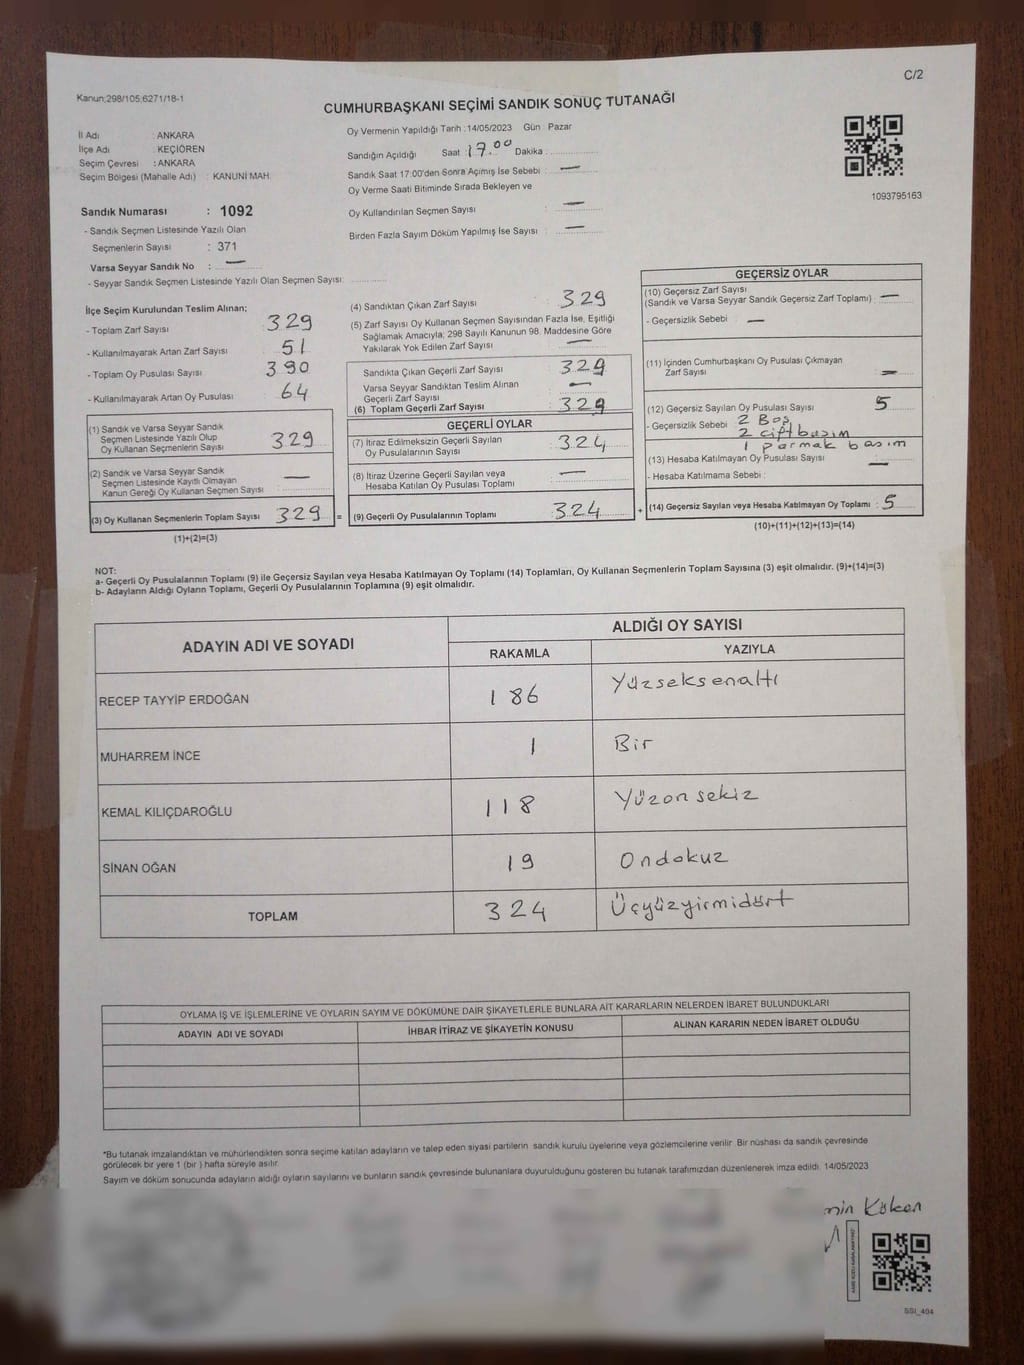 C/2
Kanun;298/105;6271/18-1
CUMHURBAŞKANI SEÇİMİ SANDIK SONUÇ TUTANAĞI
İl Adı : ANKARA
İlçe Adı : KEÇİÖREN
Seçim Çevresi : ANKARA
Seçim Bölgesi (Mahalle Adı) : KANUNİ MAH.
Oy Vermenin Yapıldığı Tarih : 14/05/2023 Gün Pazar
Sandığın Açıldığı Saat : 17.00 Dakika :
Sandık Saat 17:00'den Sonra Açımış İse Sebebi : —
Oy Verme Saati Bitiminde Sırada Bekleyen ve
Oy Kullandırılan Seçmen Sayısı : —
Birden Fazla Sayım Döküm Yapılmış İse Sayısı : —
1093795163
Sandık Numarası : 1092
- Sandık Seçmen Listesinde Yazılı Olan
Seçmenlerin Sayısı : 371
Varsa Seyyar Sandık No : —
- Seyyar Sandık Seçmen Listesinde Yazılı Olan Seçmen Sayısı:
İlçe Seçim Kurulundan Teslim Alınan;
- Toplam Zarf Sayısı 329
- Kullanılmayarak Artan Zarf Sayısı 51
- Toplam Oy Pusulası Sayısı 390
- Kullanılmayarak Artan Oy Pusulası 64
(1) Sandık ve Varsa Seyyar Sandık
Seçmen Listesinde Yazılı Olup
Oy Kullanan Seçmenlerin Sayısı 329
(2) Sandık ve Varsa Seyyar Sandık
Seçmen Listesinde Kayıtlı Olmayan
Kanun Gereği Oy Kullanan Seçmen Sayısı : —
(3) Oy Kullanan Seçmenlerin Toplam Sayısı 329 =
(1)+(2)=(3)
(4) Sandıktan Çıkan Zarf Sayısı 329
(5) Zarf Sayısı Oy Kullanan Seçmen Sayısından Fazla İse, Eşitliği
Sağlamak Amacıyla; 298 Sayılı Kanunun 98. Maddesine Göre
Yakılarak Yok Edilen Zarf Sayısı —
Sandıkta Çıkan Geçerli Zarf Sayısı : 329
Varsa Seyyar Sandıktan Teslim Alınan
Geçerli Zarf Sayısı : —
(6) Toplam Geçerli Zarf Sayısı : 329
GEÇERLİ OYLAR
(7) İtiraz Edilmeksizin Geçerli Sayılan
Oy Pusulalarının Sayısı : 324
(8) İtiraz Üzerine Geçerli Sayılan veya
Hesaba Katılan Oy Pusulası Toplamı : —
(9) Geçerli Oy Pusulalarının Toplamı : 324 +
GEÇERSİZ OYLAR
(10) Geçersiz Zarf Sayısı
(Sandık ve Varsa Seyyar Sandık Geçersiz Zarf Toplamı) : —
- Geçersizlik Sebebi : —
(11) İçinden Cumhurbaşkanı Oy Pusulası Çıkmayan
Zarf Sayısı : —
(12) Geçersiz Sayılan Oy Pusulası Sayısı : 5
- Geçersizlik Sebebi : 2 Boş
2 çift basım
1 parmak basım
(13) Hesaba Katılmayan Oy Pusulası Sayısı : —
- Hesaba Katılmama Sebebi :
(14) Geçersiz Sayılan veya Hesaba Katılmayan Oy Toplamı : 5
(10)+(11)+(12)+(13)=(14)
NOT:
a- Geçerli Oy Pusulalarının Toplamı (9) ile Geçersiz Sayılan veya Hesaba Katılmayan Oy Toplamı (14) Toplamları, Oy Kullanan Seçmenlerin Toplam Sayısına (3) eşit olmalıdır. (9)+(14)=(3)
b- Adayların Aldığı Oyların Toplamı, Geçerli Oy Pusulalarının Toplamına (9) eşit olmalıdır.
ADAYIN ADI VE SOYADI
ALDIĞI OY SAYISI
RAKAMLA YAZIYLA
RECEP TAYYİP ERDOĞAN 186 Yüzseksenaltı
MUHARREM İNCE 1 Bir
KEMAL KILIÇDAROĞLU 118 Yüzonsekiz
SİNAN OĞAN 19 Ondokuz
TOPLAM 324 Üçyüzyirmidört
OYLAMA İŞ VE İŞLEMLERİNE VE OYLARIN SAYIM VE DÖKÜMÜNE DAİR ŞİKAYETLERLE BUNLARA AİT KARARLARIN NELERDEN İBARET BULUNDUKLARI
ADAYIN ADI VE SOYADI İHBAR İTİRAZ VE ŞİKAYETİN KONUSU ALINAN KARARIN NEDEN İBARET OLDUĞU
*Bu tutanak imzalandıktan ve mühürlendikten sonra seçime katılan adayların ve talep eden siyasi partilerin sandık kurulu üyelerine veya gözlemcilerine verilir. Bir nüshası da sandık çevresinde
görülecek bir yere 1 (bir ) hafta süreyle asılır.
Sayım ve döküm sonucunda adayların aldığı oyların sayılarını ve bunların sandık çevresinde bulunanlara duyurulduğunu gösteren bu tutanak tarafımızdan düzenlenerek imza edildi. 14/05/2023
min Kölen
SSI_404